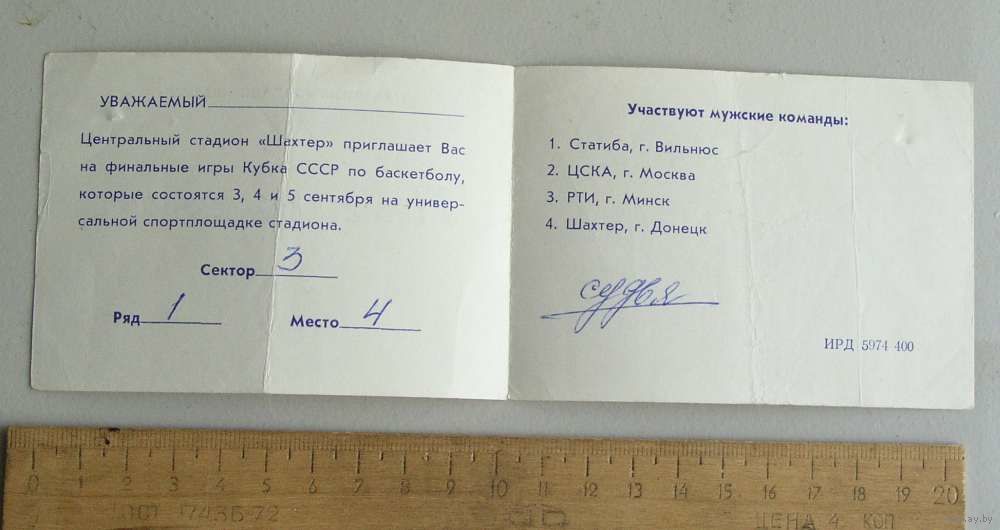 УВАЖАЕМЫЙ
Центральный стадион «Шахтер» приглашает Вас
на финальные игры Кубка СССР по баскетболу,
которые состоятся 3, 4 и 5 сентября на универ-
сальной спортплощадке стадиона.
Сектор 3
Ряд 1 Место 4
Участвуют мужские команды:
1. Статиба, г. Вильнюс
2. ЦСКА, г. Москва
3. РТИ, г. Минск
4. Шахтер, г. Донецк
судья
ИРД 5974 400
0 1 2 3 4 5 6 7 8 9 10 11 12 13 14 15 16 17 18 19 20
ЦЕНА 4 КОП
ay.by